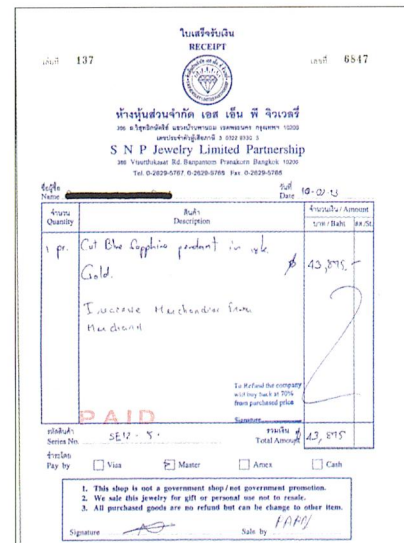 ใบเสร็จรับเงิน
RECEIPT
เล่มที่ 137
เลขที่ 6847
ห้างหุ้นส่วนจำกัด เอส เอ็น พี จิวเวลรี่
S N P Jewelry Limited Partnership
Visutthikasat Rd. Banpantom Pranakorn Bangkok 10200
Tel. 0-2629-5767, 0-2629-5768 Fax. 0-2629-5768
ชื่อผู้ซื้อ
Name
วันที่
Date
จำนวน
Quantity
สินค้า
Description
จำนวนเงิน / Amount
บาท / Baht
สต./St.
1 pr. Cut Blue Sapphire pendant in
Gold. 43,875.-
Merchandise from
To Refund the company
will buy back at 70%
from purchased price
Signature
PAID
รหัสสินค้า
Series No. SE12 - 5.
รวมเงิน
Total Amount 43,875
ชำระโดย
Pay by Visa Master Amex Cash
1. This shop is not a government shop/not government promotion.
2. We sale this jewelry for gift or personal use not to resale.
3. All purchased goods are no refund but can be change to other item.
Signature
Sale by